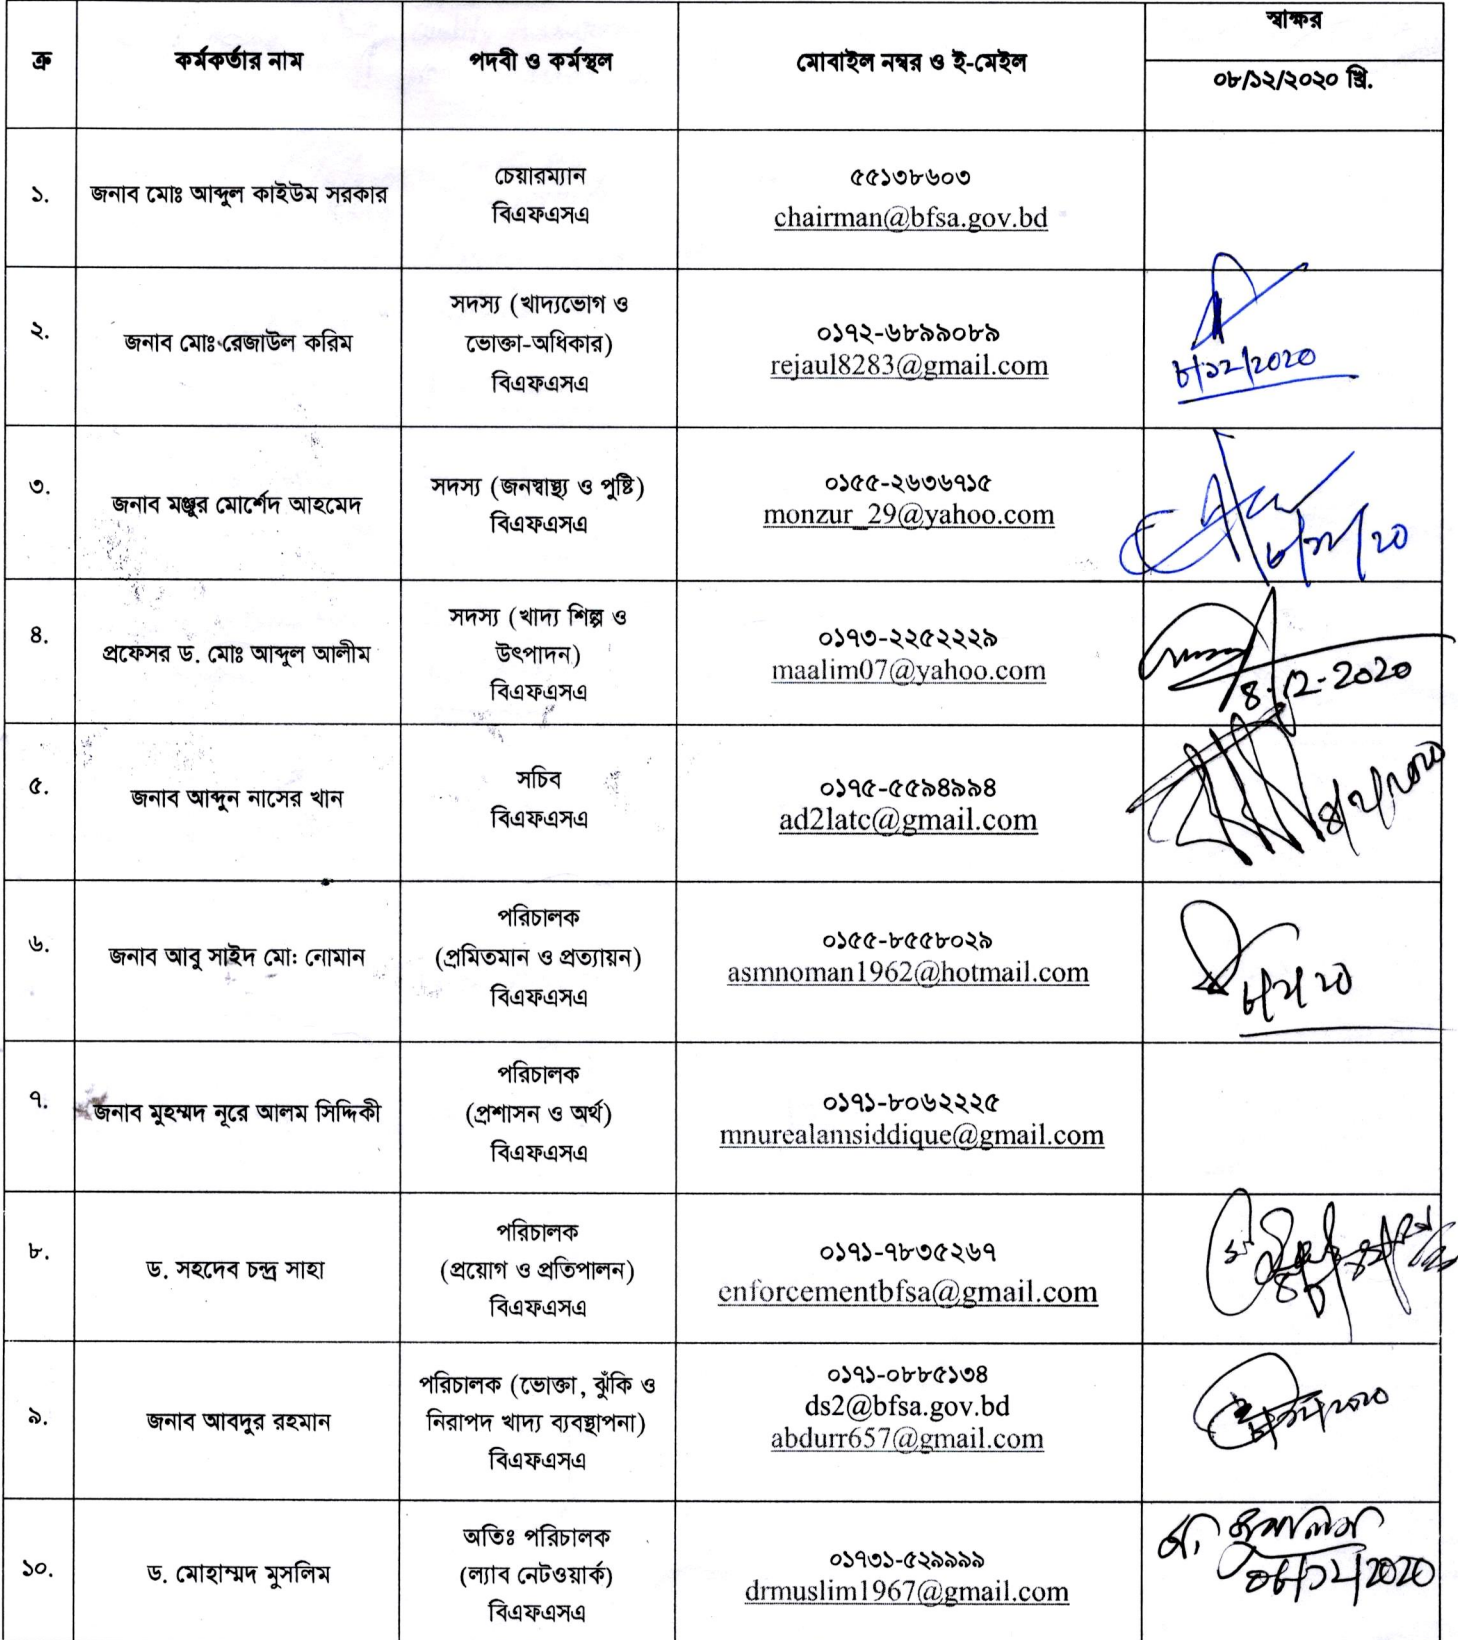 ক্র
কর্মকর্তার নাম
পদবী ও কর্মস্থল
মোবাইল নম্বর ও ই-মেইল
স্বাক্ষর
০৮/১২/২০২০ খ্রি.
১.
জনাব মোঃ আব্দুল কাইউম সরকার
চেয়ারম্যান
বিএফএসএ
৫৫১৩৮৬০৩
chairman@bfsa.gov.bd
২.
জনাব মোঃ রেজাউল করিম
সদস্য (খাদ্যভোগ ও
ভোক্তা-অধিকার)
বিএফএসএ
০১৭২-৬৮৯৯০৮৯
rejaul8283@gmail.com
৮/১২/২০২০
৩.
জনাব মঞ্জুর মোর্শেদ আহমেদ
সদস্য (জনস্বাস্থ্য ও পুষ্টি)
বিএফএসএ
০১৫৫-২৬৩৬৭১৫
monzur_29@yahoo.com
৮/১২/২০
৪.
প্রফেসর ড. মোঃ আব্দুল আলীম
সদস্য (খাদ্য শিল্প ও
উৎপাদন)
বিএফএসএ
০১৭৩-২২৫২২২৯
maalim07@yahoo.com
8-12-2020
৫.
জনাব আব্দুন নাসের খান
সচিব
বিএফএসএ
০১৭৫-৫৫৯৪৯৯৪
ad2latc@gmail.com
৬.
জনাব আবু সাইদ মো: নোমান
পরিচালক
(প্রমিতমান ও প্রত্যায়ন)
বিএফএসএ
০১৫৫-৮৫৫৮০২৯
asmnoman1962@hotmail.com
৭.
জনাব মুহম্মদ নূরে আলম সিদ্দিকী
পরিচালক
(প্রশাসন ও অর্থ)
বিএফএসএ
০১৭১-৮০৬২২২৫
mnurealamsiddique@gmail.com
৮.
ড. সহদেব চন্দ্র সাহা
পরিচালক
(প্রয়োগ ও প্রতিপালন)
বিএফএসএ
০১৭১-৭৮৩৫২৬৭
enforcementbfsa@gmail.com
৯.
জনাব আবদুর রহমান
পরিচালক (ভোক্তা, ঝুঁকি ও
নিরাপদ খাদ্য ব্যবস্থাপনা)
বিএফএসএ
০১৭১-০৮৮৫১৩৪
ds2@bfsa.gov.bd
abdurr657@gmail.com
১০.
ড. মোহাম্মদ মুসলিম
অতিঃ পরিচালক
(ল্যাব নেটওয়ার্ক)
বিএফএসএ
০১৭৩১-৫২৯৯৯৯
drmuslim1967@gmail.com
মুসলিম
০৮/১২/২০২০